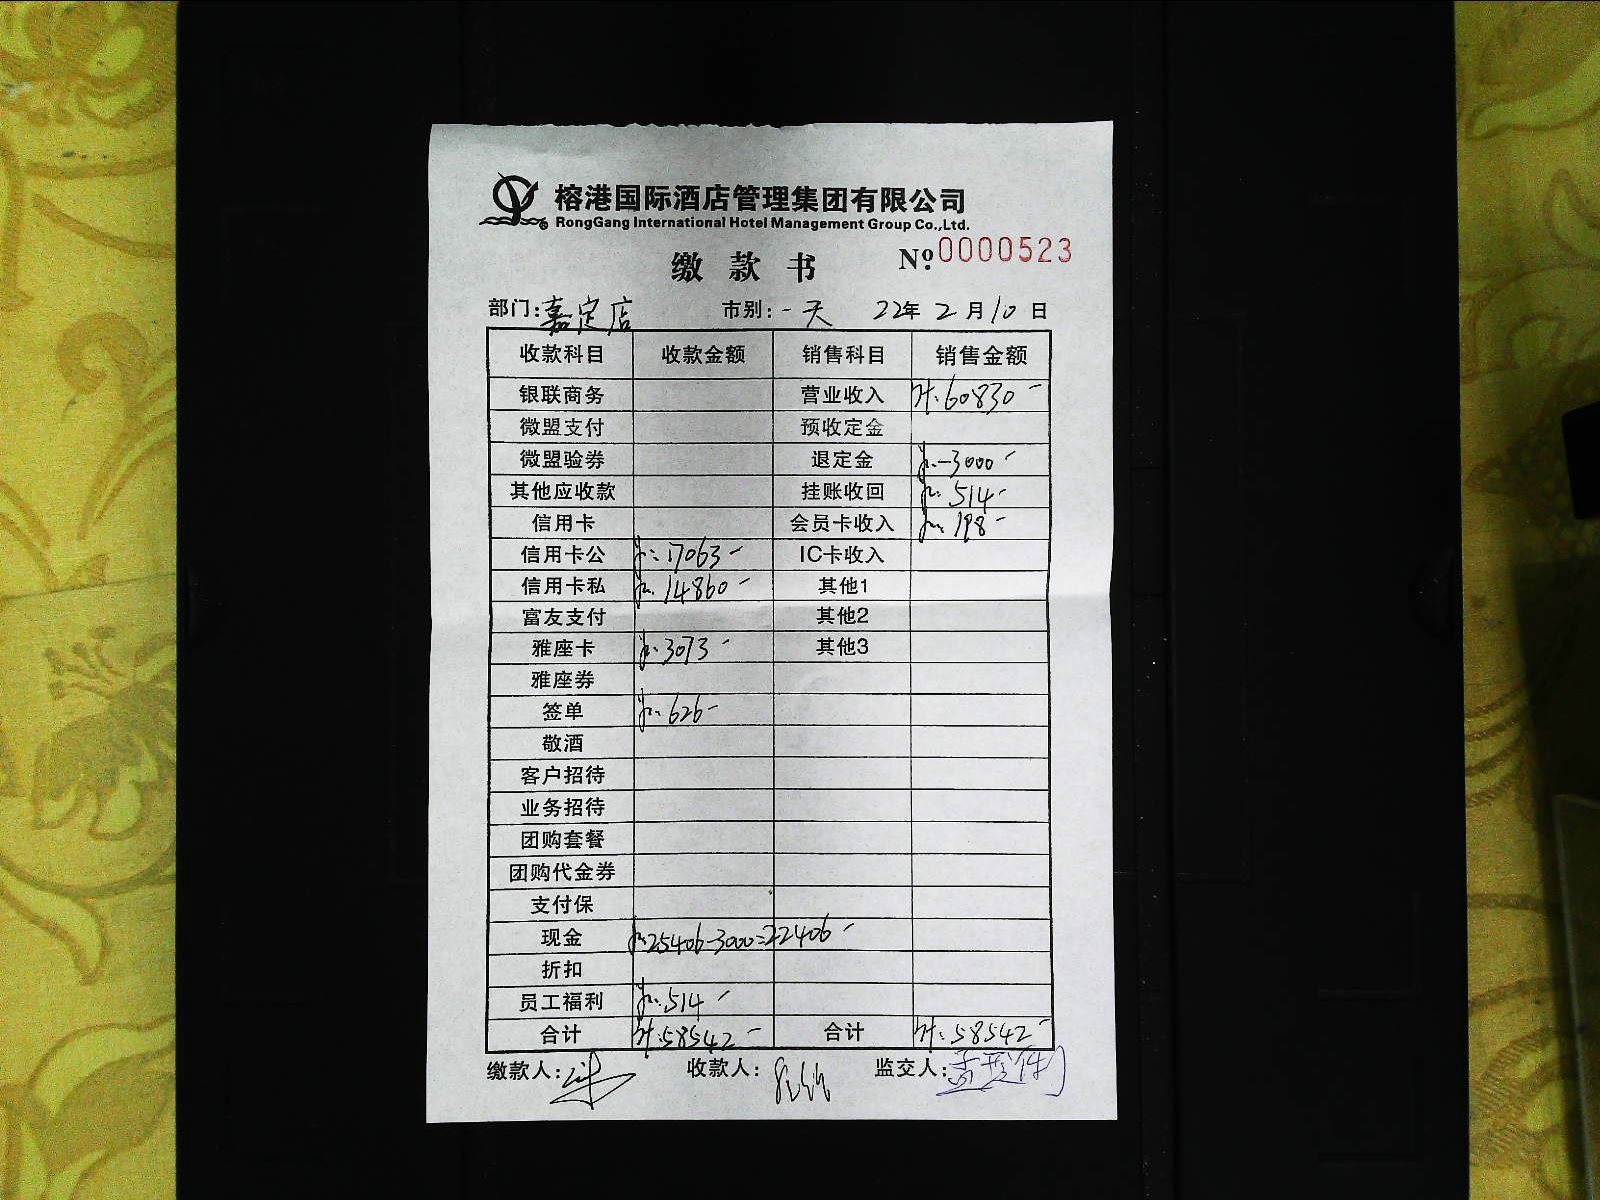 榕港国际酒店管理集团有限公司
RongGang International Hotel Management Group Co.,Ltd.
缴款书 Nº 0000523
部门:嘉定店 市别:一天 22年2月10日
收款科目 收款金额 销售科目 销售金额
银联商务 营业收入 计:60830-
微盟支付 预收定金
微盟验券 退定金 -3000-
其他应收款 挂账收回 514-
信用卡 会员卡收入 198-
信用卡公 17063- IC卡收入
信用卡私 14860- 其他1
富友支付 其他2
雅座卡 3073- 其他3
雅座券
签单 626-
敬酒
客户招待
业务招待
团购套餐
团购代金券
支付保
现金 25406-3000=22406-
折扣
员工福利 514-
合计 计:58542- 合计 计:58542-
缴款人: 收款人: 监交人: